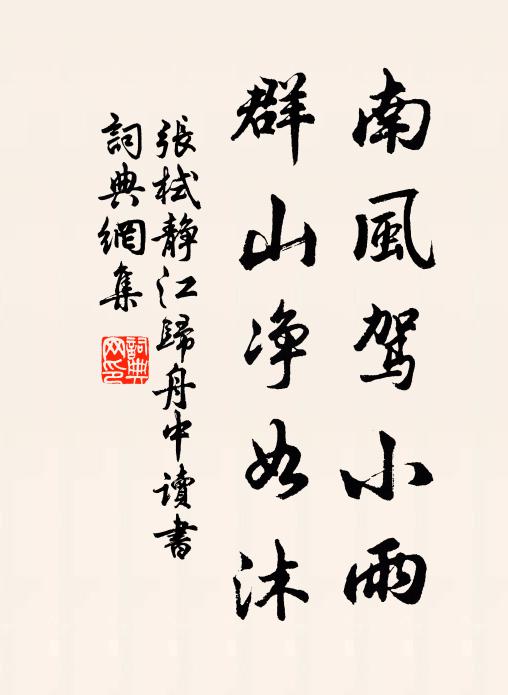 南風駕小雨
群山净如沐
張栻靜江歸舟中讀書
詞典網集
詞典網印